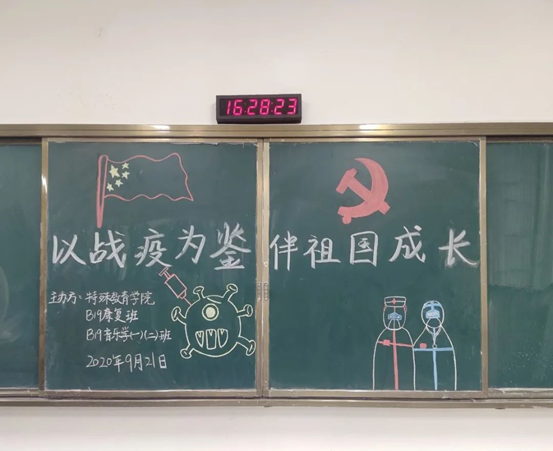 16:28:23
以战疫为鉴 伴祖国成长
主办方：特殊教育学院
B19康复班
B19音乐学(一)(二)班
2020年9月21日